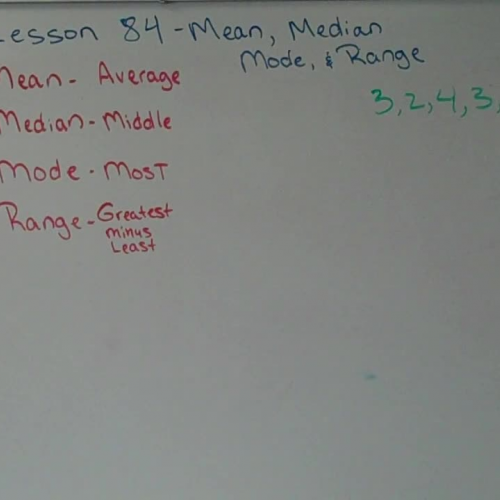 Lesson 84 - Mean, Median
Mode, & Range
Mean - Average
3, 2, 4, 3,
Median - Middle
Mode - Most
Range - Greatest
minus
Least